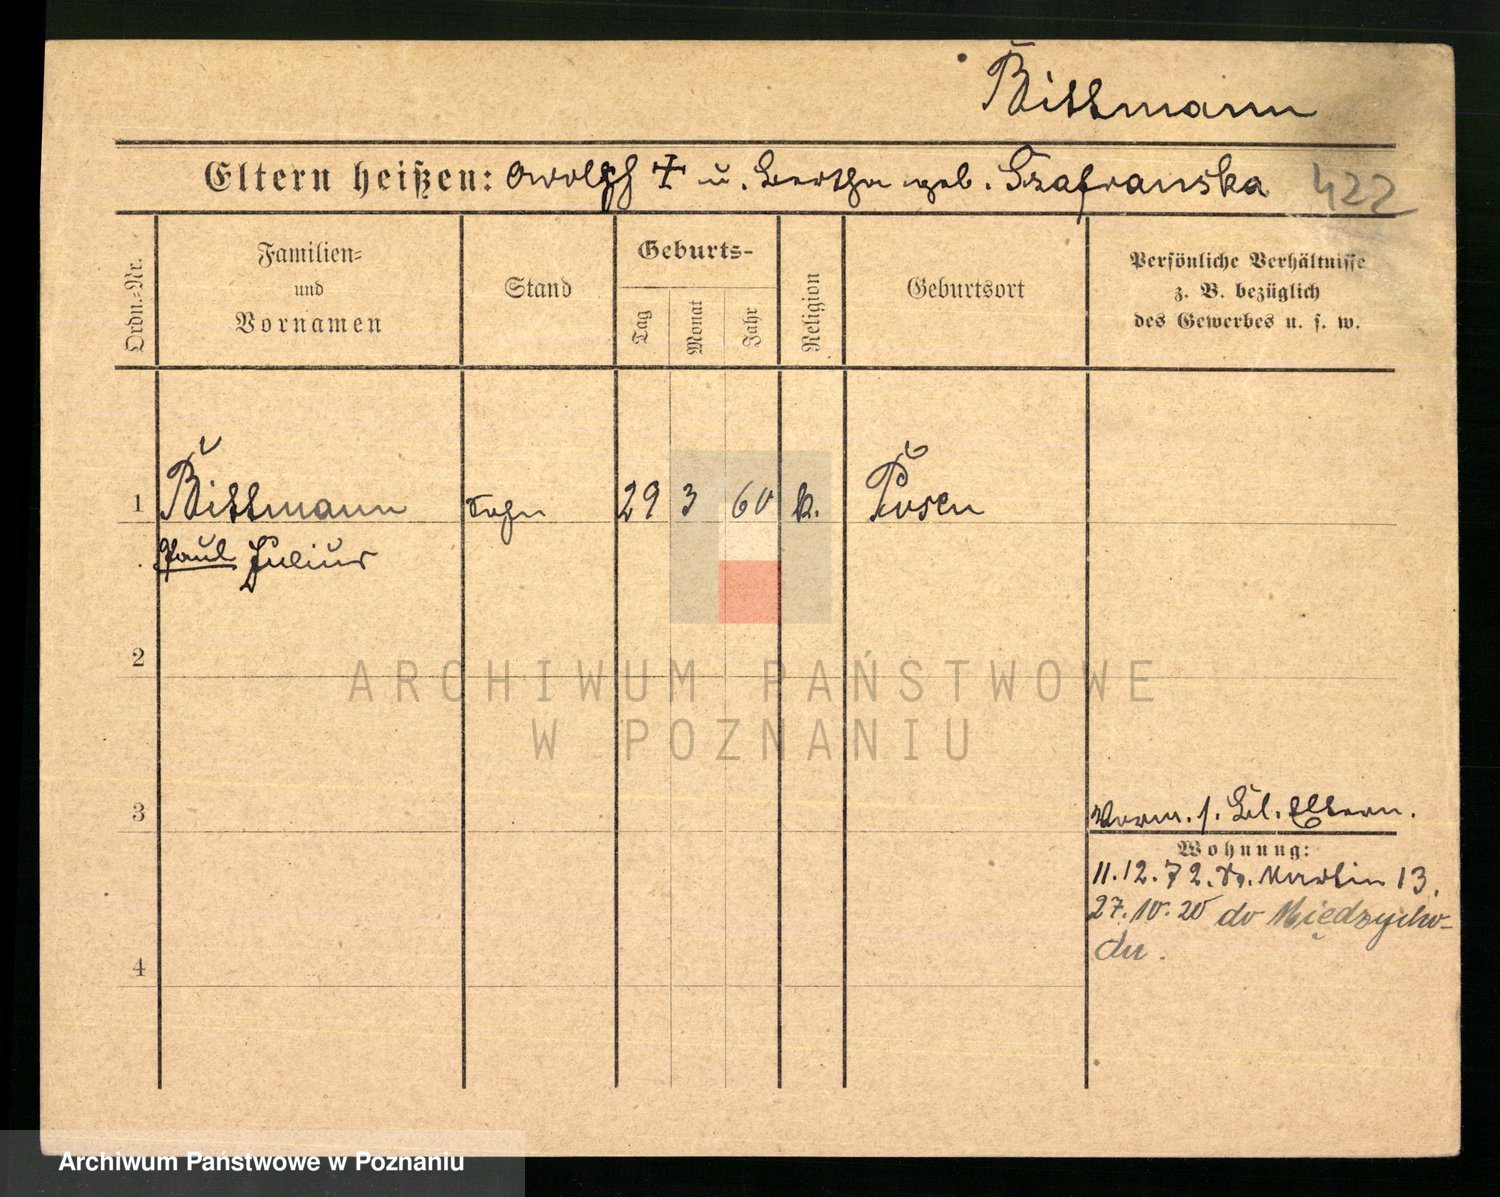 Bittmann
Eltern heißen: Adolph † u. Bertha geb. Szafranska 422
Ordn.-Nr.
Familien-
und
Vornamen
Stand
Geburts-
Tag
Monat
Jahr
Religion
Geburtsort
Persönliche Verhältnisse
z. B. bezüglich
des Gewerbes u. s. w.
1 Bittmann Sohn 29 3 60 k. Posen
Paul Julius
2
ARCHIWUM PAŃSTWOWE
W POZNANIU
3
Vorm. s. Bl. Eltern.
Wohnung:
11.12.72. St. Martin 13.
27.10.20 do Międzycho-
du.
4
Archiwum Państwowe w Poznaniu